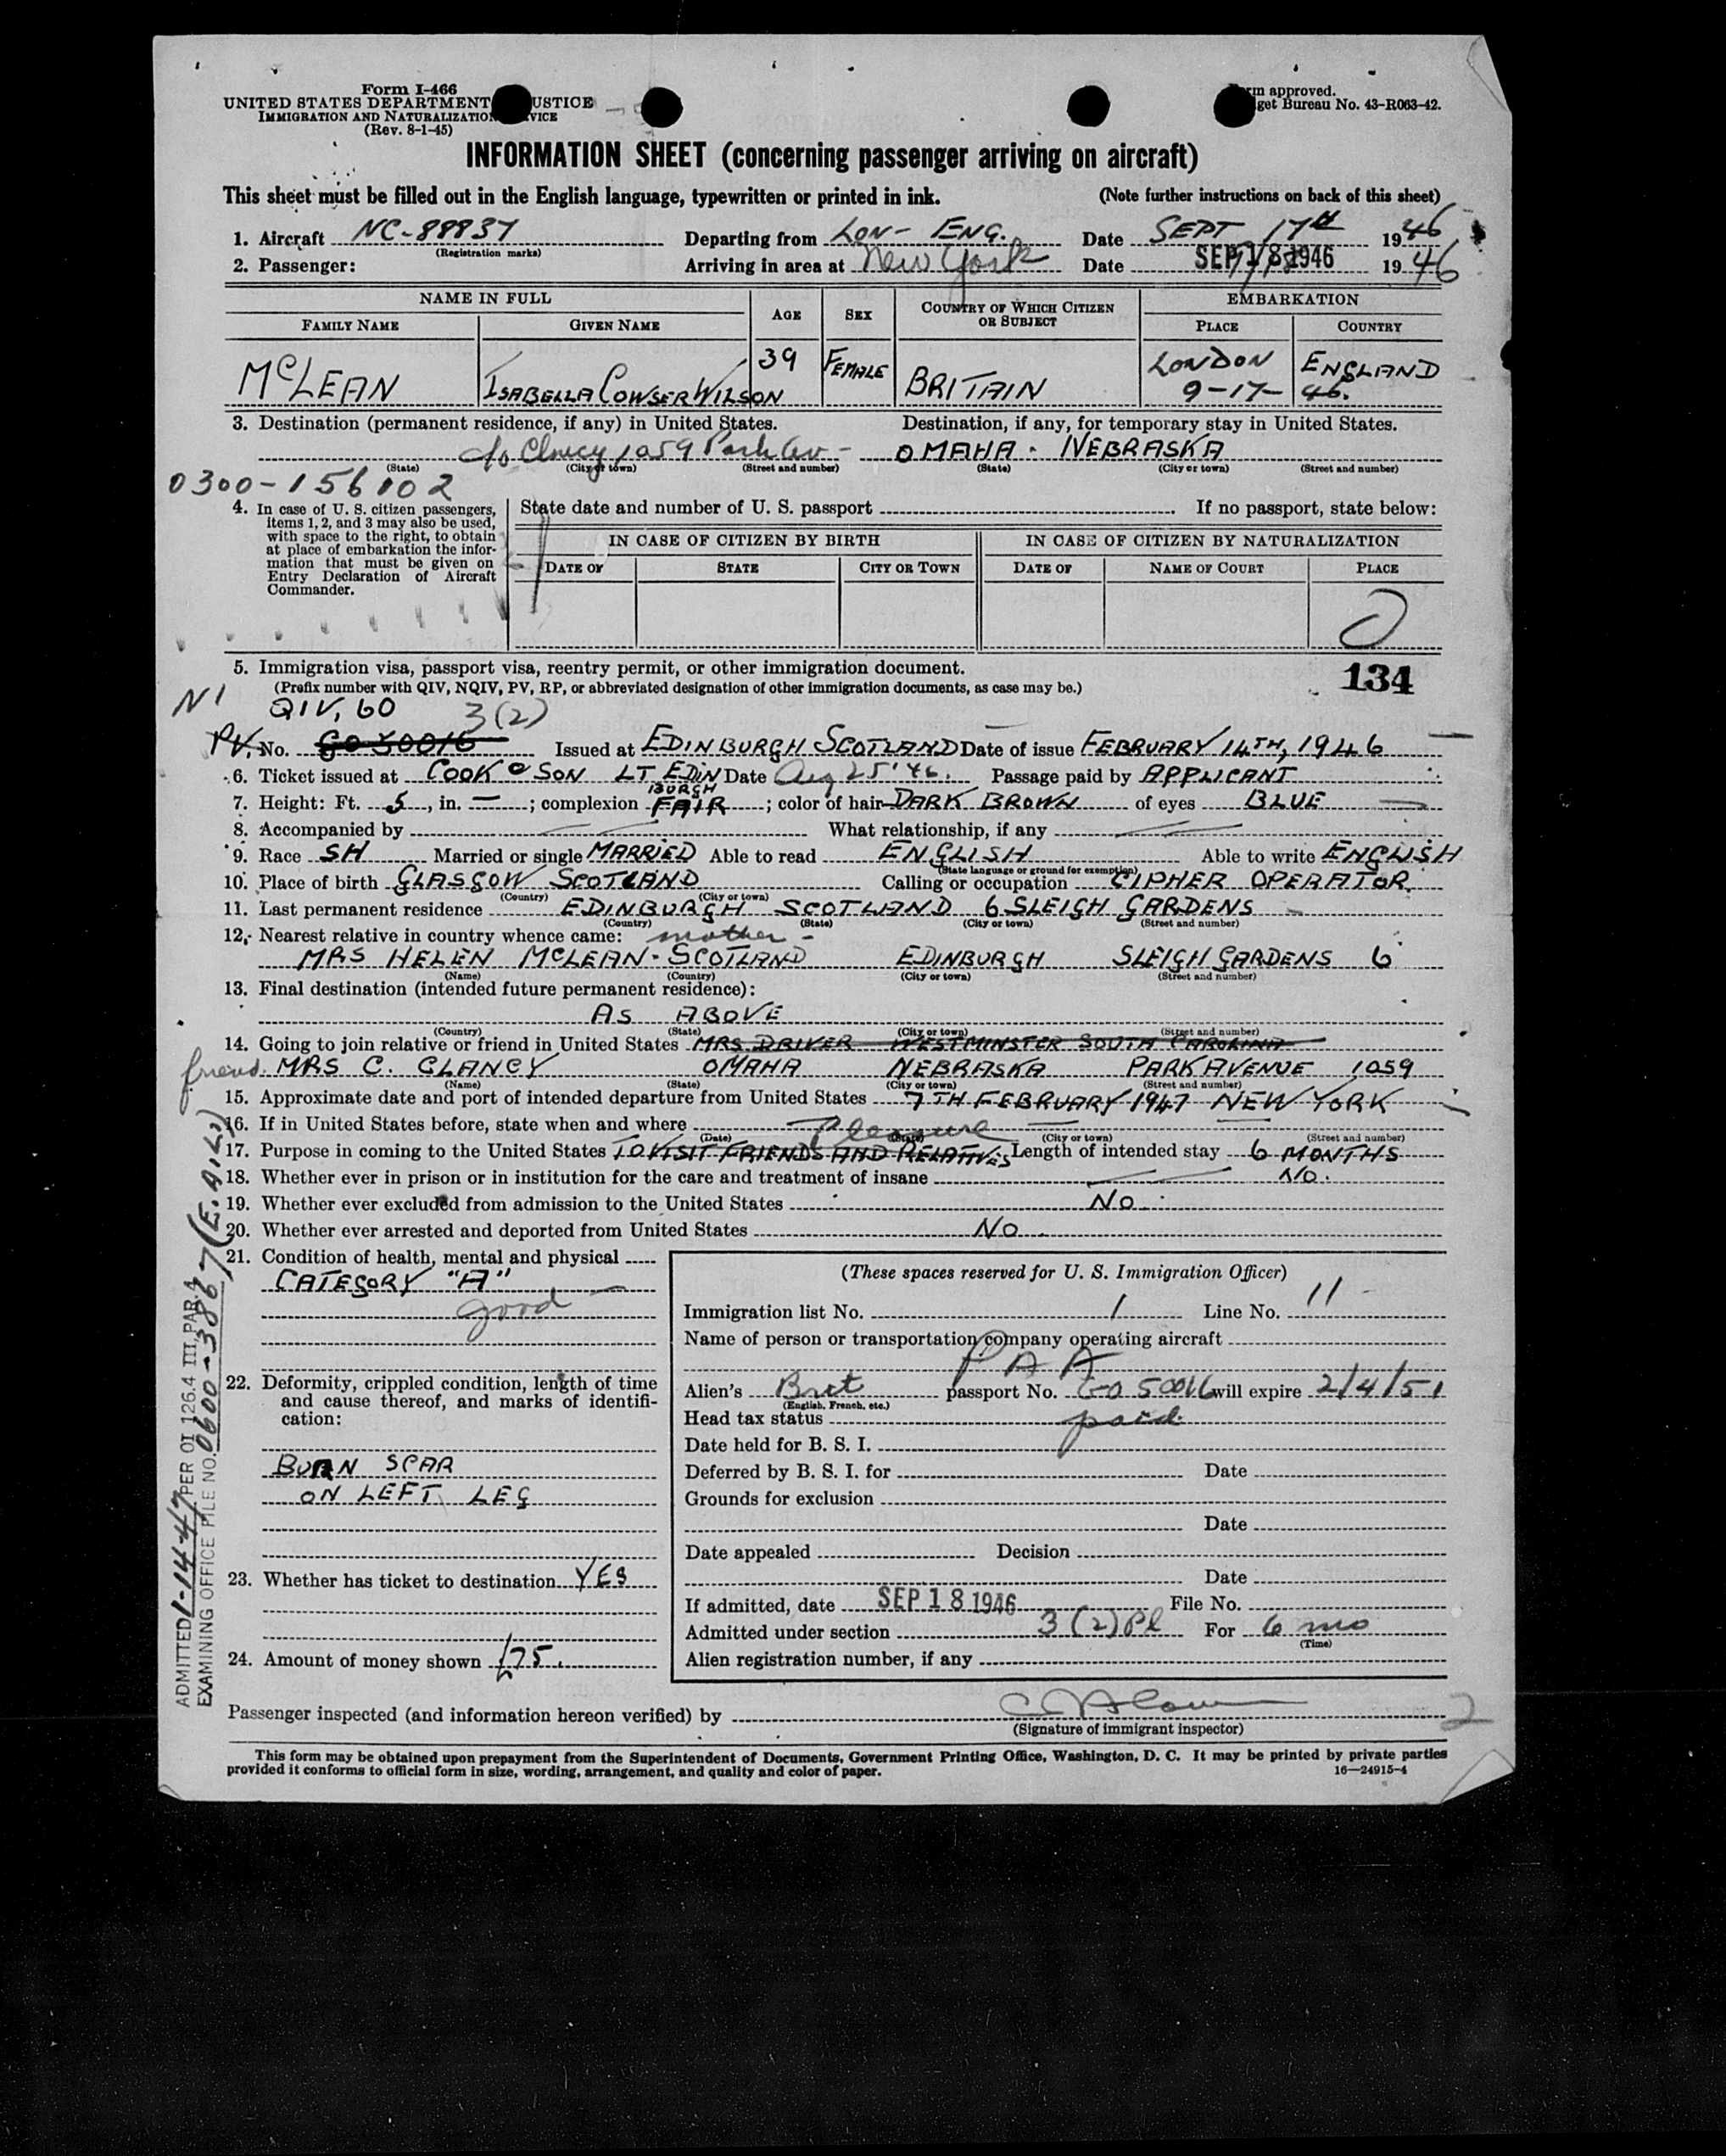 Form I-466
UNITED STATES DEPARTMENT JUSTICE
IMMIGRATION AND NATURALIZATION SERVICE
(Rev. 8-1-45)
Form approved.
Budget Bureau No. 43-R063-42.
INFORMATION SHEET (concerning passenger arriving on aircraft)
This sheet must be filled out in the English language, typewritten or printed in ink. (Note further instructions on back of this sheet)
1. Aircraft NC-88837 Departing from LON- ENG. Date SEPT 17th 1946
(Registration marks)
2. Passenger: Arriving in area at New York Date SEP 18 1946 1946
NAME IN FULL AGE SEX COUNTRY OF WHICH CITIZEN OR SUBJECT EMBARKATION
FAMILY NAME GIVEN NAME PLACE COUNTRY
McLEAN ISABELLA COWSER WILSON 39 FEMALE BRITAIN LONDON ENGLAND
9-17- 46.
3. Destination (permanent residence, if any) in United States. Destination, if any, for temporary stay in United States.
c/o Clancy 1059 Park Av - OMAHA - NEBRASKA
(State) (City or town) (Street and number) (State) (City or town) (Street and number)
0300-156102
4. In case of U. S. citizen passengers, items 1, 2, and 3 may also be used, with space to the right, to obtain at place of embarkation the information that must be given on Entry Declaration of Aircraft Commander.
State date and number of U. S. passport . If no passport, state below:
IN CASE OF CITIZEN BY BIRTH IN CASE OF CITIZEN BY NATURALIZATION
DATE OF STATE CITY OR TOWN DATE OF NAME OF COURT PLACE
134
5. Immigration visa, passport visa, reentry permit, or other immigration document.
(Prefix number with QIV, NQIV, PV, RP, or abbreviated designation of other immigration documents, as case may be.)
N1 QIV, 60 3(2)
PV. No. GO 50016 Issued at EDINBURGH SCOTLAND Date of issue FEBRUARY 14TH, 1946
6. Ticket issued at COOK & SON LT EDINBURGH Date Aug 25 '46. Passage paid by APPLICANT
7. Height: Ft. 5, in. —; complexion FAIR; color of hair DARK BROWN of eyes BLUE
8. Accompanied by What relationship, if any
9. Race SH Married or single MARRIED Able to read ENGLISH Able to write ENGLISH
(State language or ground for exemption)
10. Place of birth GLASGOW SCOTLAND Calling or occupation CIPHER OPERATOR
(Country) (City or town)
11. Last permanent residence EDINBURGH SCOTLAND 6 SLEIGH GARDENS
(Country) (State) (City or town) (Street and number)
12. Nearest relative in country whence came: mother -
MRS HELEN McLEAN - SCOTLAND EDINBURGH SLEIGH GARDENS 6
(Name) (Country) (City or town) (Street and number)
13. Final destination (intended future permanent residence):
AS ABOVE
(Country) (State) (City or town) (Street and number)
14. Going to join relative or friend in United States MRS DRIVER WESTMINSTER SOUTH CAROLINA
friend MRS C. CLANCY OMAHA NEBRASKA PARK AVENUE 1059
(Name) (State) (City or town) (Street and number)
15. Approximate date and port of intended departure from United States 7TH FEBRUARY 1947 NEW YORK
16. If in United States before, state when and where
(Date) (State) (City or town) (Street and number)
Pleasure
17. Purpose in coming to the United States TO VISIT FRIENDS AND RELATIVES Length of intended stay 6 MONTHS
18. Whether ever in prison or in institution for the care and treatment of insane NO.
19. Whether ever excluded from admission to the United States NO.
20. Whether ever arrested and deported from United States NO
21. Condition of health, mental and physical
CATEGORY "A"
good
22. Deformity, crippled condition, length of time and cause thereof, and marks of identification:
BURN SCAR
ON LEFT LEG
23. Whether has ticket to destination YES
24. Amount of money shown £75.
(These spaces reserved for U. S. Immigration Officer)
Immigration list No. 1 Line No. 11
Name of person or transportation company operating aircraft
PAA
Alien's Brit passport No. GO 50016 will expire 2/4/51
(English, French, etc.)
Head tax status paid
Date held for B. S. I.
Deferred by B. S. I. for Date
Grounds for exclusion
Date
Date appealed Decision
Date
If admitted, date SEP 18 1946 File No.
Admitted under section 3(2) Pl For 6 mo
(Time)
Alien registration number, if any
Passenger inspected (and information hereon verified) by
(Signature of immigrant inspector)
2
This form may be obtained upon prepayment from the Superintendent of Documents, Government Printing Office, Washington, D. C. It may be printed by private parties
provided it conforms to official form in size, wording, arrangement, and quality and color of paper. 16—24915-4
ADMITTED 1-14-47 PER OI 126.4 III, PAR. 4
EXAMINING OFFICE FILE NO. 0600-38677